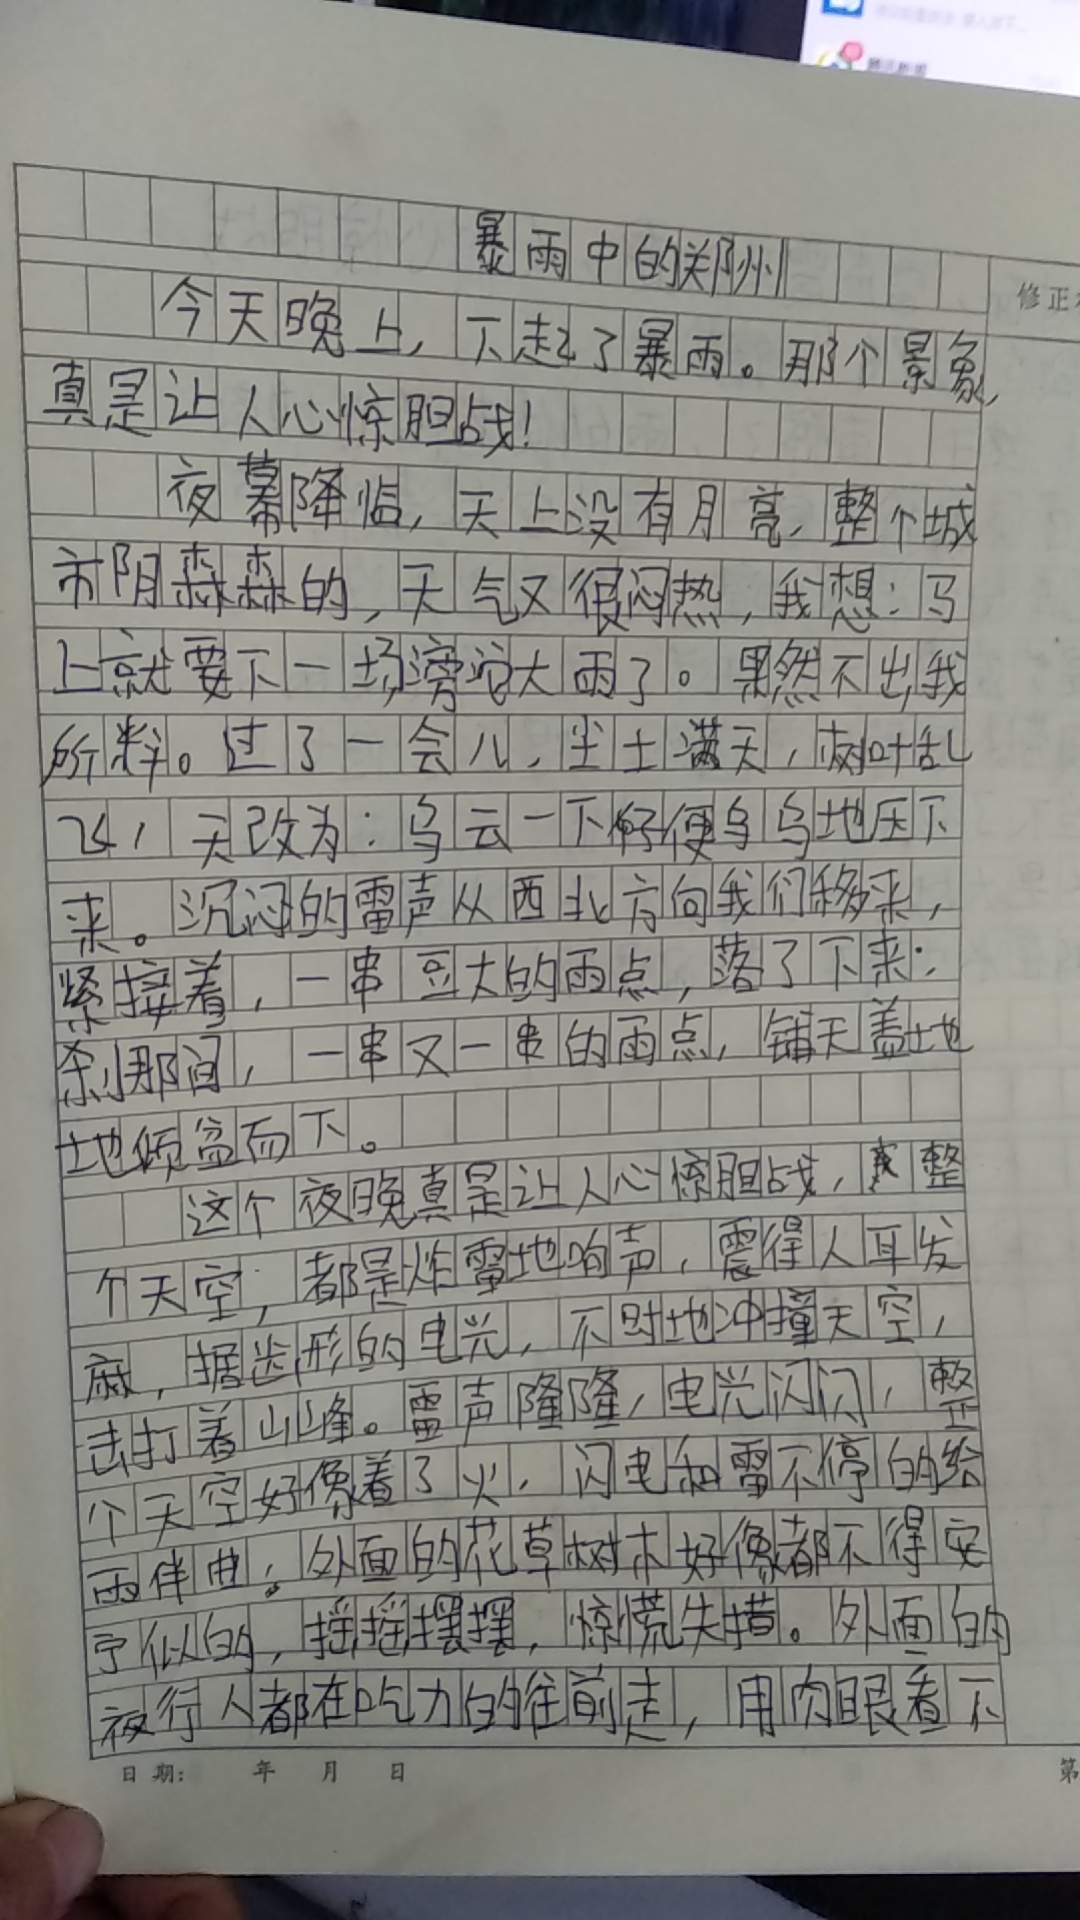 暴雨中的郑州
修正
今天晚上，下起了暴雨。那个景象，
真是让人心惊胆战！
夜幕降临，天上没有月亮，整个城
市阴森森的，天气又很闷热，我想：马
上就要下一场滂沱大雨了。果然不出我
所料。过了一会儿，尘土满天，树叶乱
飞，天改为：乌云一下好便乌乌地压下
来。沉闷的雷声从西北方向我们移来，
紧接着，一串豆大的雨点，落了下来；
刹那间，一串又一串的雨点，铺天盖地
地倾盆而下。
这个夜晚真是让人心惊胆战，整
个天空，都是炸雷地响声，震得人耳发
麻，据齿形的电光，不时地冲撞天空，
击打着山峰。雷声隆隆，电光闪闪，整
个天空好像着了火，闪电和雷不停的给
雨伴曲；外面的花草树木好像都不得安
宁似的，摇摇摆摆，惊慌失措。外面的
夜行人都在吃力的往前走，用肉眼看不
日期： 年 月 日
第